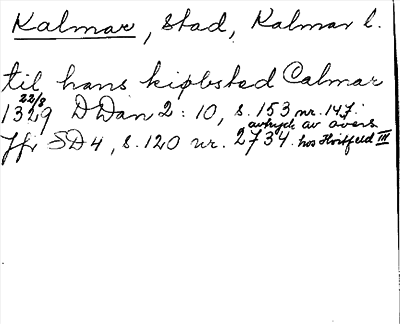 Kalmar, stad, Kalmar l.
til hans kiøbsted Calmar
22/8
1329 DDan 2:10, s. 153, nr. 147.
avtryck av övers.
Jfr SD 4, s. 120 nr. 2734. hos Hvitfeld III